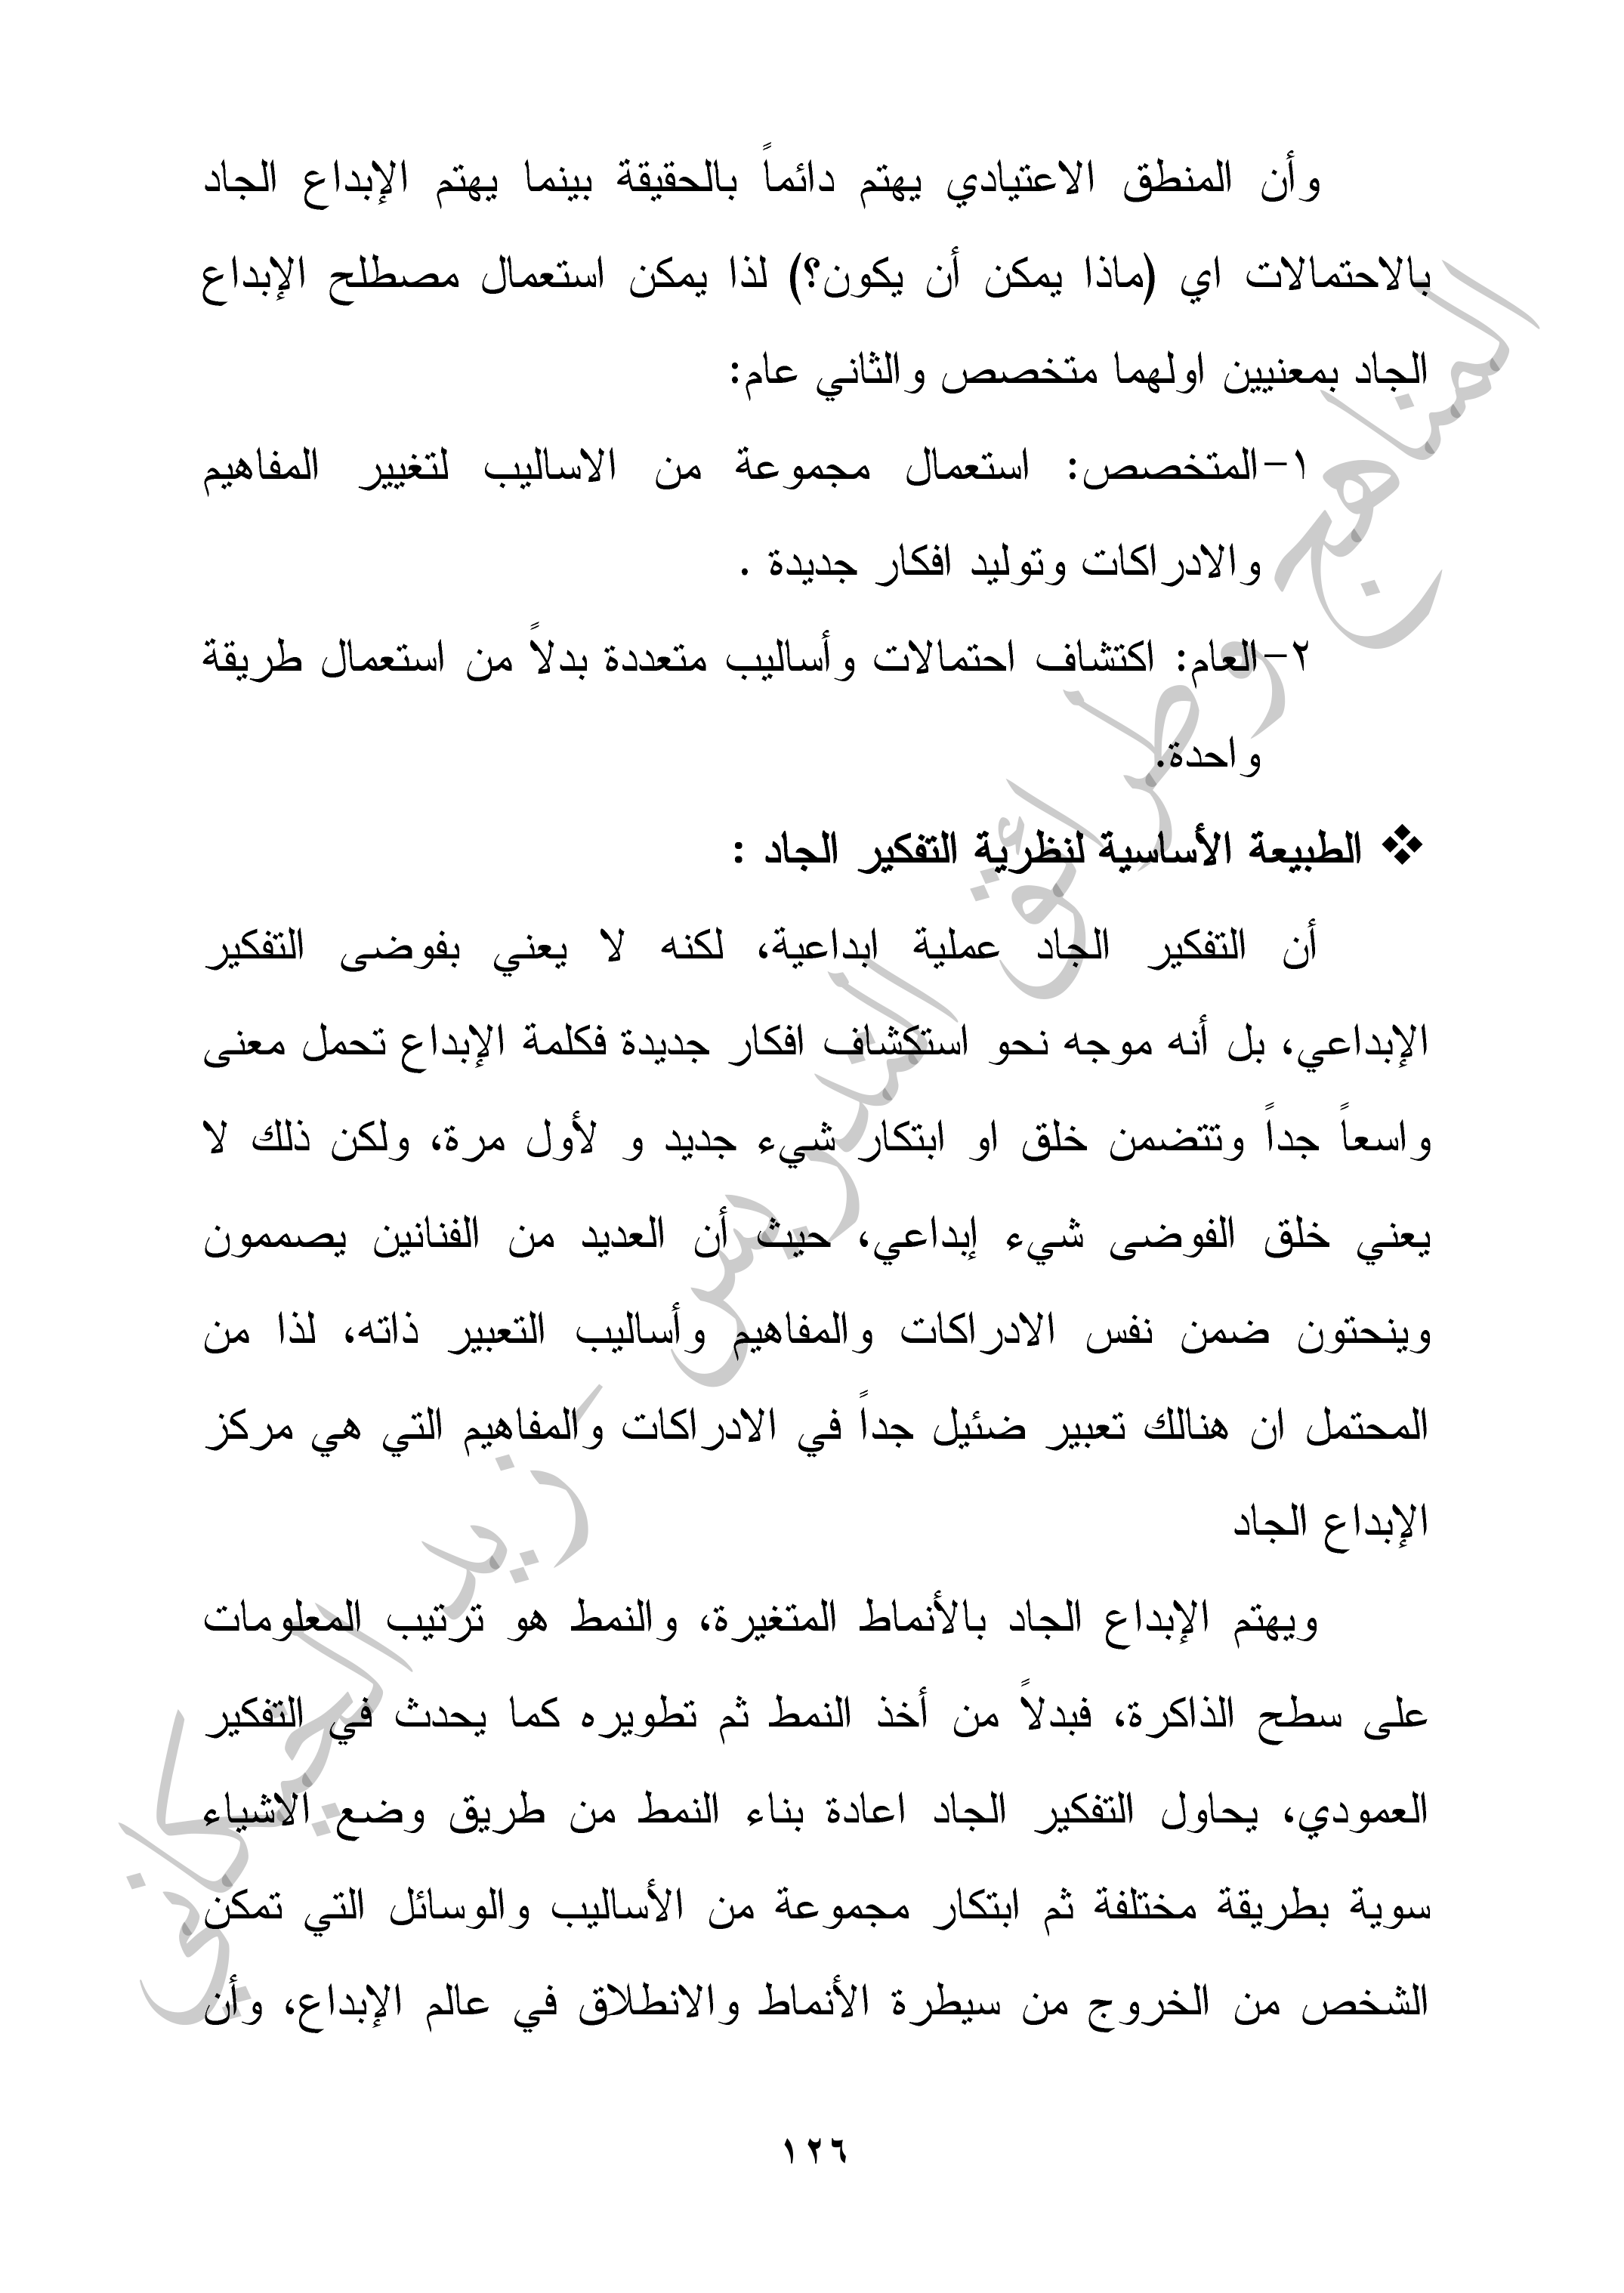 وأن المنطق الاعتيادي يهتم دائماً بالحقيقة بينما يهتم الإبداع الجاد
بالاحتمالات اي (ماذا يمكن أن يكون؟) لذا يمكن استعمال مصطلح الإبداع
الجاد بمعنيين اولهما متخصص والثاني عام:
١-المتخصص: استعمال مجموعة من الاساليب لتغيير المفاهيم
والادراكات وتوليد افكار جديدة .
٢-العام: اكتشاف احتمالات وأساليب متعددة بدلاً من استعمال طريقة
واحدة.
❖ الطبيعة الأساسية لنظرية التفكير الجاد :
أن التفكير الجاد عملية ابداعية، لكنه لا يعني بفوضى التفكير
الإبداعي، بل أنه موجه نحو استكشاف افكار جديدة فكلمة الإبداع تحمل معنى
واسعاً جداً وتتضمن خلق او ابتكار شيء جديد و لأول مرة، ولكن ذلك لا
يعني خلق الفوضى شيء إبداعي، حيث أن العديد من الفنانين يصممون
وينحتون ضمن نفس الادراكات والمفاهيم وأساليب التعبير ذاته، لذا من
المحتمل ان هنالك تعبير ضئيل جداً في الادراكات والمفاهيم التي هي مركز
الإبداع الجاد
ويهتم الإبداع الجاد بالأنماط المتغيرة، والنمط هو ترتيب المعلومات
على سطح الذاكرة، فبدلاً من أخذ النمط ثم تطويره كما يحدث في التفكير
العمودي، يحاول التفكير الجاد اعادة بناء النمط من طريق وضع الاشياء
سوية بطريقة مختلفة ثم ابتكار مجموعة من الأساليب والوسائل التي تمكن
الشخص من الخروج من سيطرة الأنماط والانطلاق في عالم الإبداع، وأن
١٢٦
المناهج وطرائق التدريس _ زيد الحيكاني